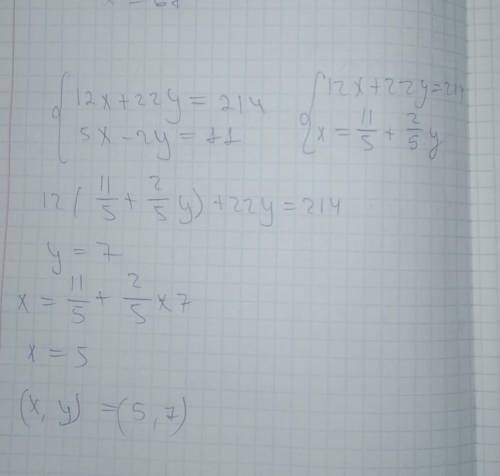 12x+22y = 214
5x-2y = 11
12x+22y=214
x = 11/5 + 2/5 y
12 ( 11/5 + 2/5 y) +22y = 214
y = 7
x = 11/5 + 2/5 x 7
x = 5
(x, y) = (5, 7)